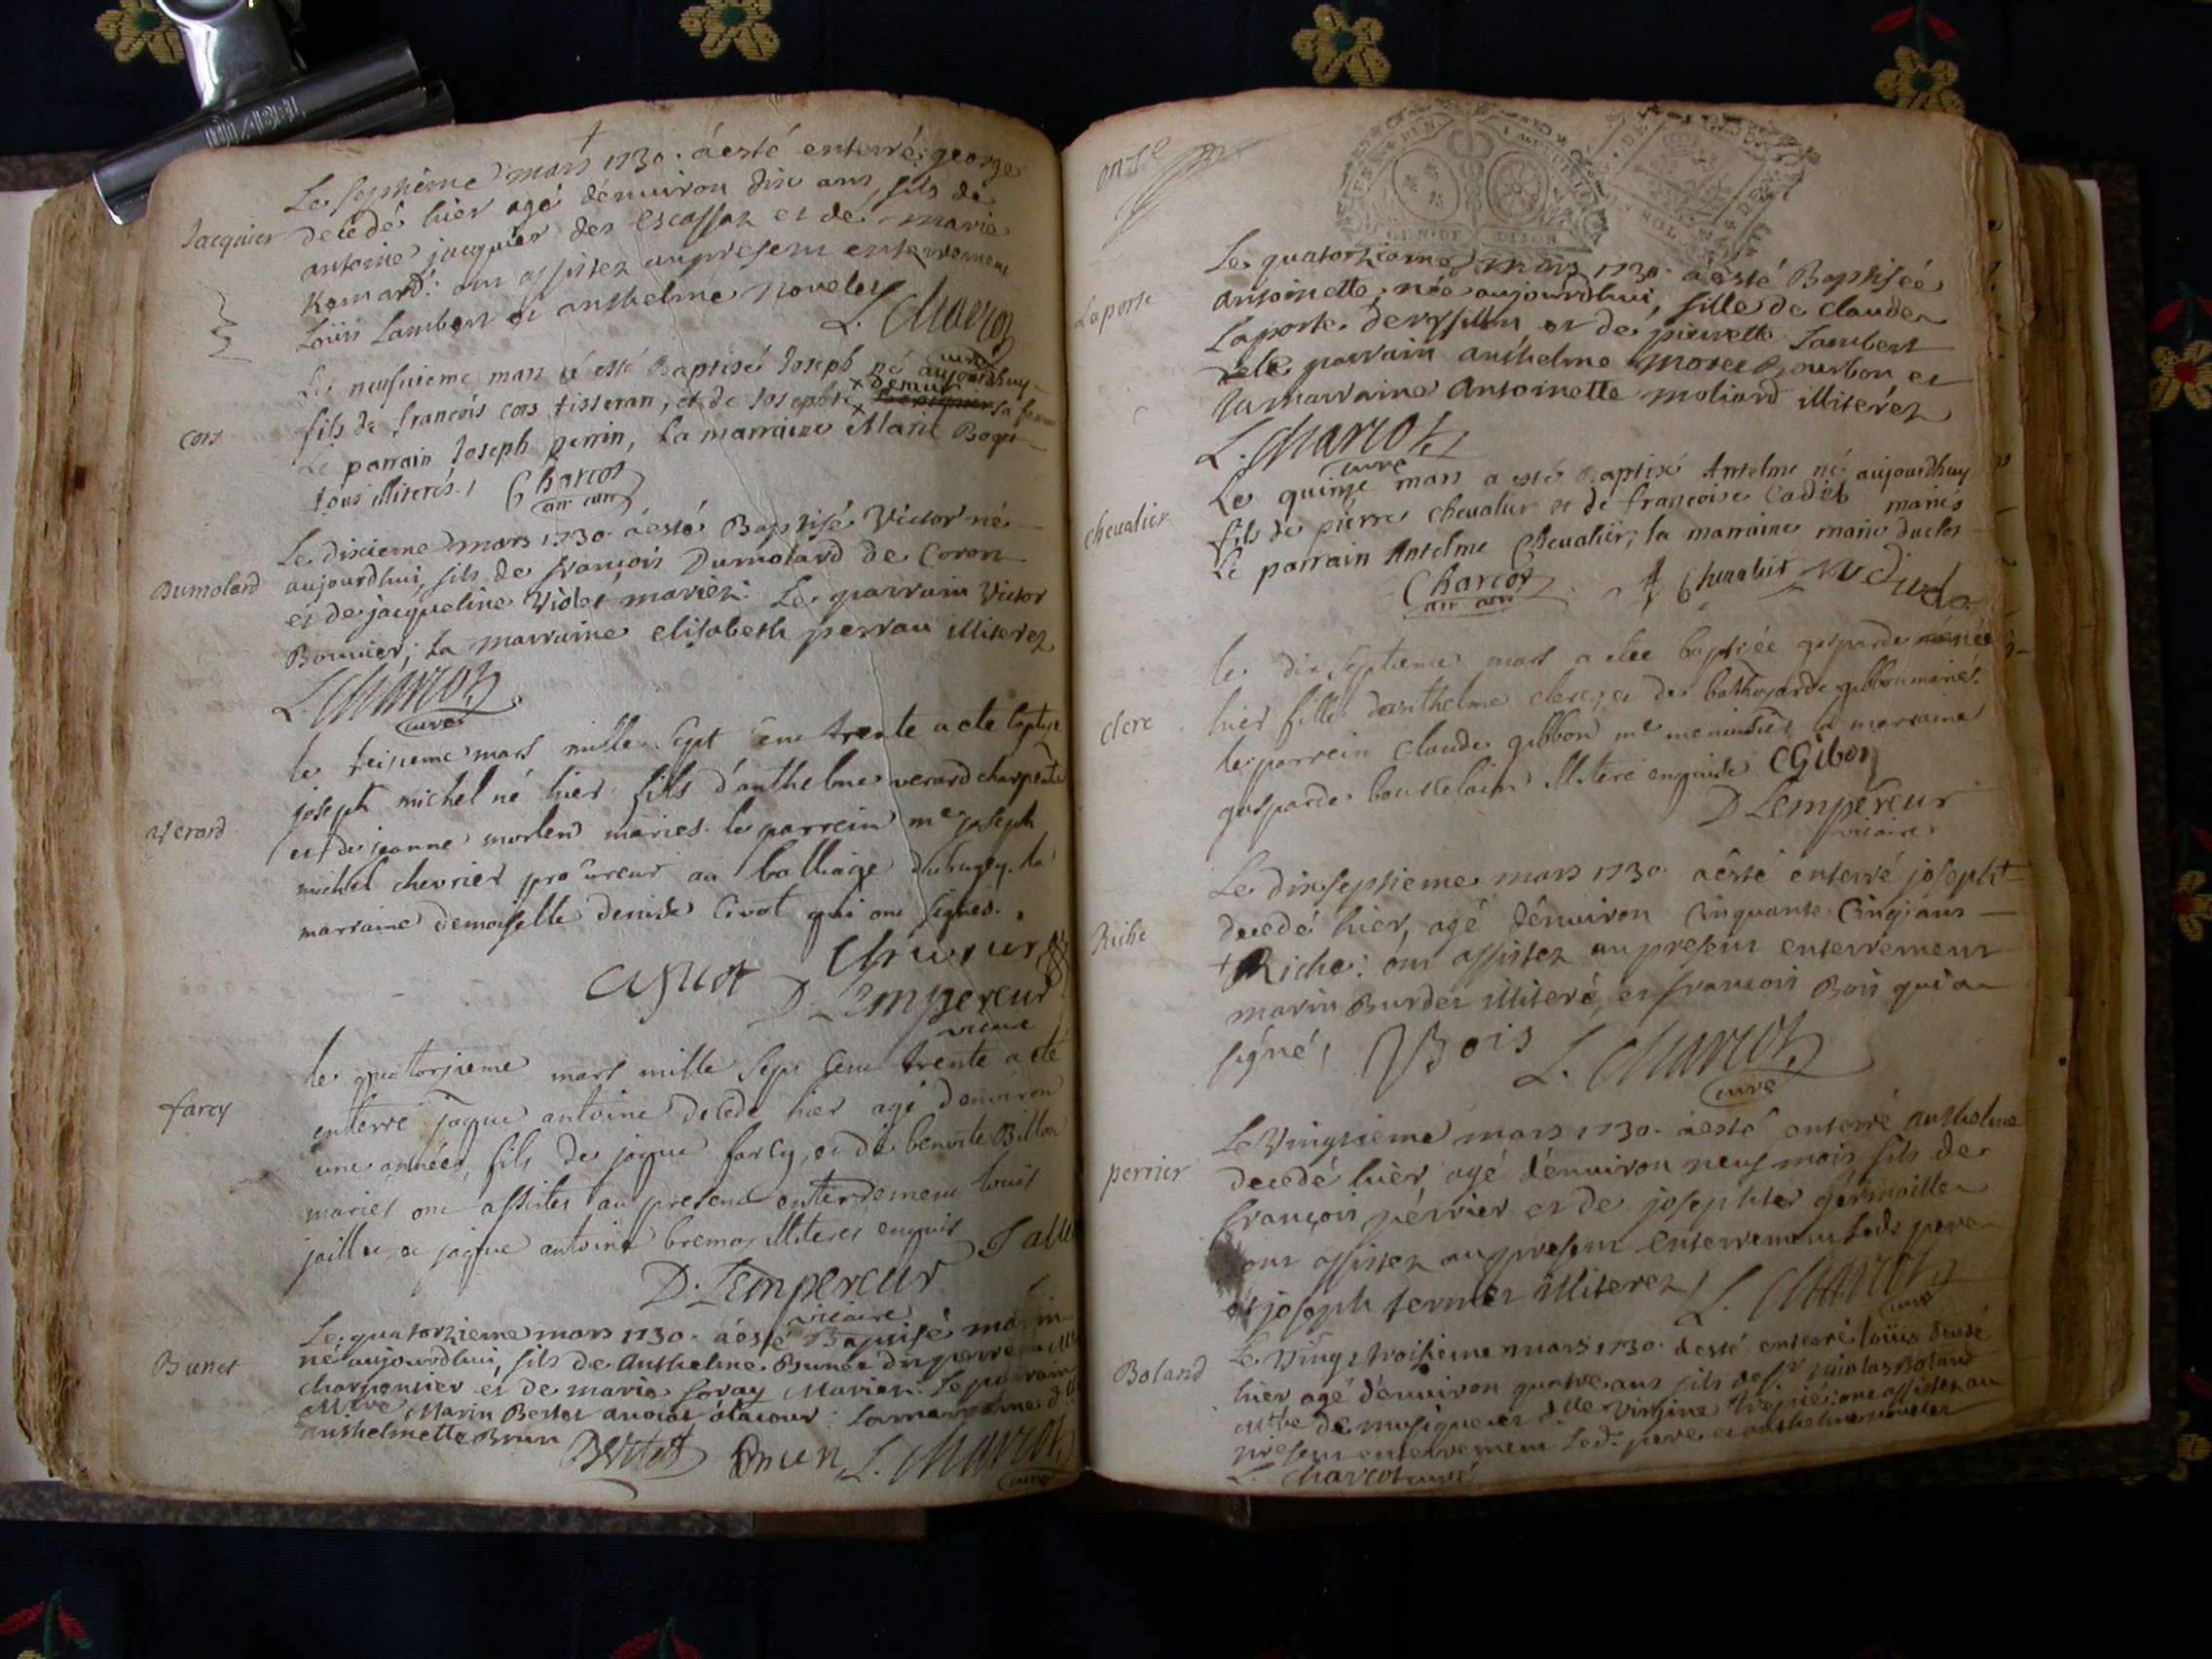 Le septhieme mars 1730. a esté enterré george
Jacquier
decedé hier agé d'enuiron dix ans, fils de
antoine jacquier des Escassaz et de marie
ont assistez au present enterrement
Loüis Lambert et anthelme Noveles
L. Charcot
Le neufuieme mars a esté Baptisé Joseph né aujourdhuy
Cors
fils de françois Cors tisseran, et de Josephte demur sa femme
Le parrain Joseph perrin, La marraine Marie
tous illiterés. Charcot
Le dixieme mars 1730. a esté Baptisé Victor né
Dumolard
aujourdhui, fils de françois Dumolard de Coron
et de jacqueline Violet mariéz. Le parrain Victor
Bonnier; La marraine elisabeth perrau illiterez
L. Charcot
curé
le treisieme mars mille sept cent trente a ete baptisé
joseph michel né hier fils d'anthelme verard charpentier
verard
et de jeanne morlen mariés. le parrein me joseph
michel chevrier procureur au balliage du bugey. la
marraine demoiselle denise Civot qui ont signés.
Chivrier
D. Lempereur
vicaire
le quatorsieme mars mille sept cent trente a ete
farcy
enterré jaque antoine decedé hier agé d'environ
une année, fils de jaque farcy, et de benoite Billon
mariés ont assistes au present enterrement louis
jaillet, et jaque antoine bremos illiteres enquis
D. Lempereur
vicaire
Le quatorzieme mars 1730. a esté Baptisé marin
Bunet
né aujourdhui, fils de Anthelme Bunet
charpentier et de marie foray Mariez. Le parrain
Marin Bertet auocat a la cour: La marraine
anthelmette Brun
Bertet Brun L. Charcot
curé
onze
GEN. DE DIJON
Le quatorzieme mars 1730. a esté Baptiséé
Laporte
antoinette, née aujourdhui, fille de claude
Laporte et de pierrette Lambert
le parrain anthelme morel Bourbon et
la marraine Antoinette moliard illiteréz
L. Charcot
curé
Le quinze mars a esté Baptisé Antelme né aujourdhuy
chevalier
fils de pierre chevalier et de françoise Cadet mariés
Le parrain Antelme Chevalier, la marraine marie duclos
Charcot A Chevalier
le dix septieme mars a etee baptiséé gasparde néé
clerc
hier fille danthelme clerc, et de balthazarde gibbon mariés.
le parrein claude gibbon me menuisier la marraine
gasparde illiteré enquise CGibon
D Lempereur
vicaire
Le dixseptieme mars 1730. a esté enterré joseph +
Riche
decedé hier, agé d'enuiron Cinquante Cinq ans
+ Riche: ont assistez au present enterrement
marin Burdet illiteré, et françois Bois qui a
signé, Bois L. Charcot
curé
Le Vingtieme mars 1730. a esté enterré anthelme
perrier
decedé hier, agé d'enuiron neuf mois fils de
françois pérrier et de josephte germoille
ont assistez au present enterrement Led. pere
et joseph fermet illiterez L. Charcot
curé
Le Vingt troisieme mars 1730. a esté enterré loüis decedé
Boland
hier agé d'enuiron quatre ans fils de sr nicolas Boland
de musique et de dlle virgine: ont assistez au
present enterrement Led. pere et anthelme noveles
L. Charcot curé